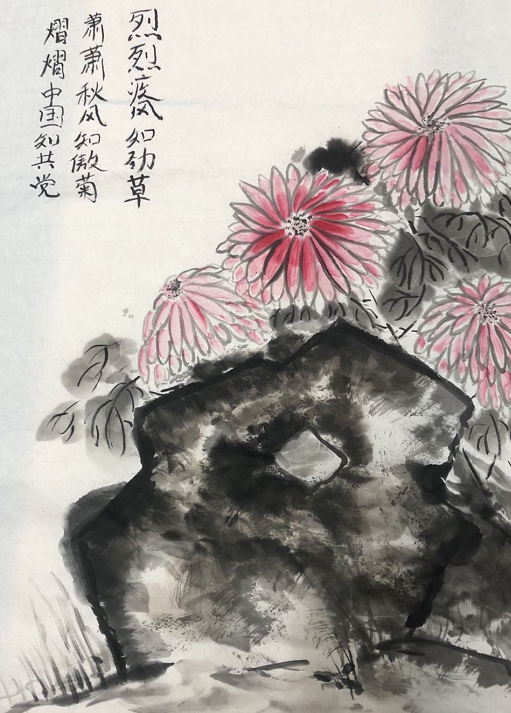 烈烈疾风知劲草
萧萧秋风知傲菊
熠熠中国知共党